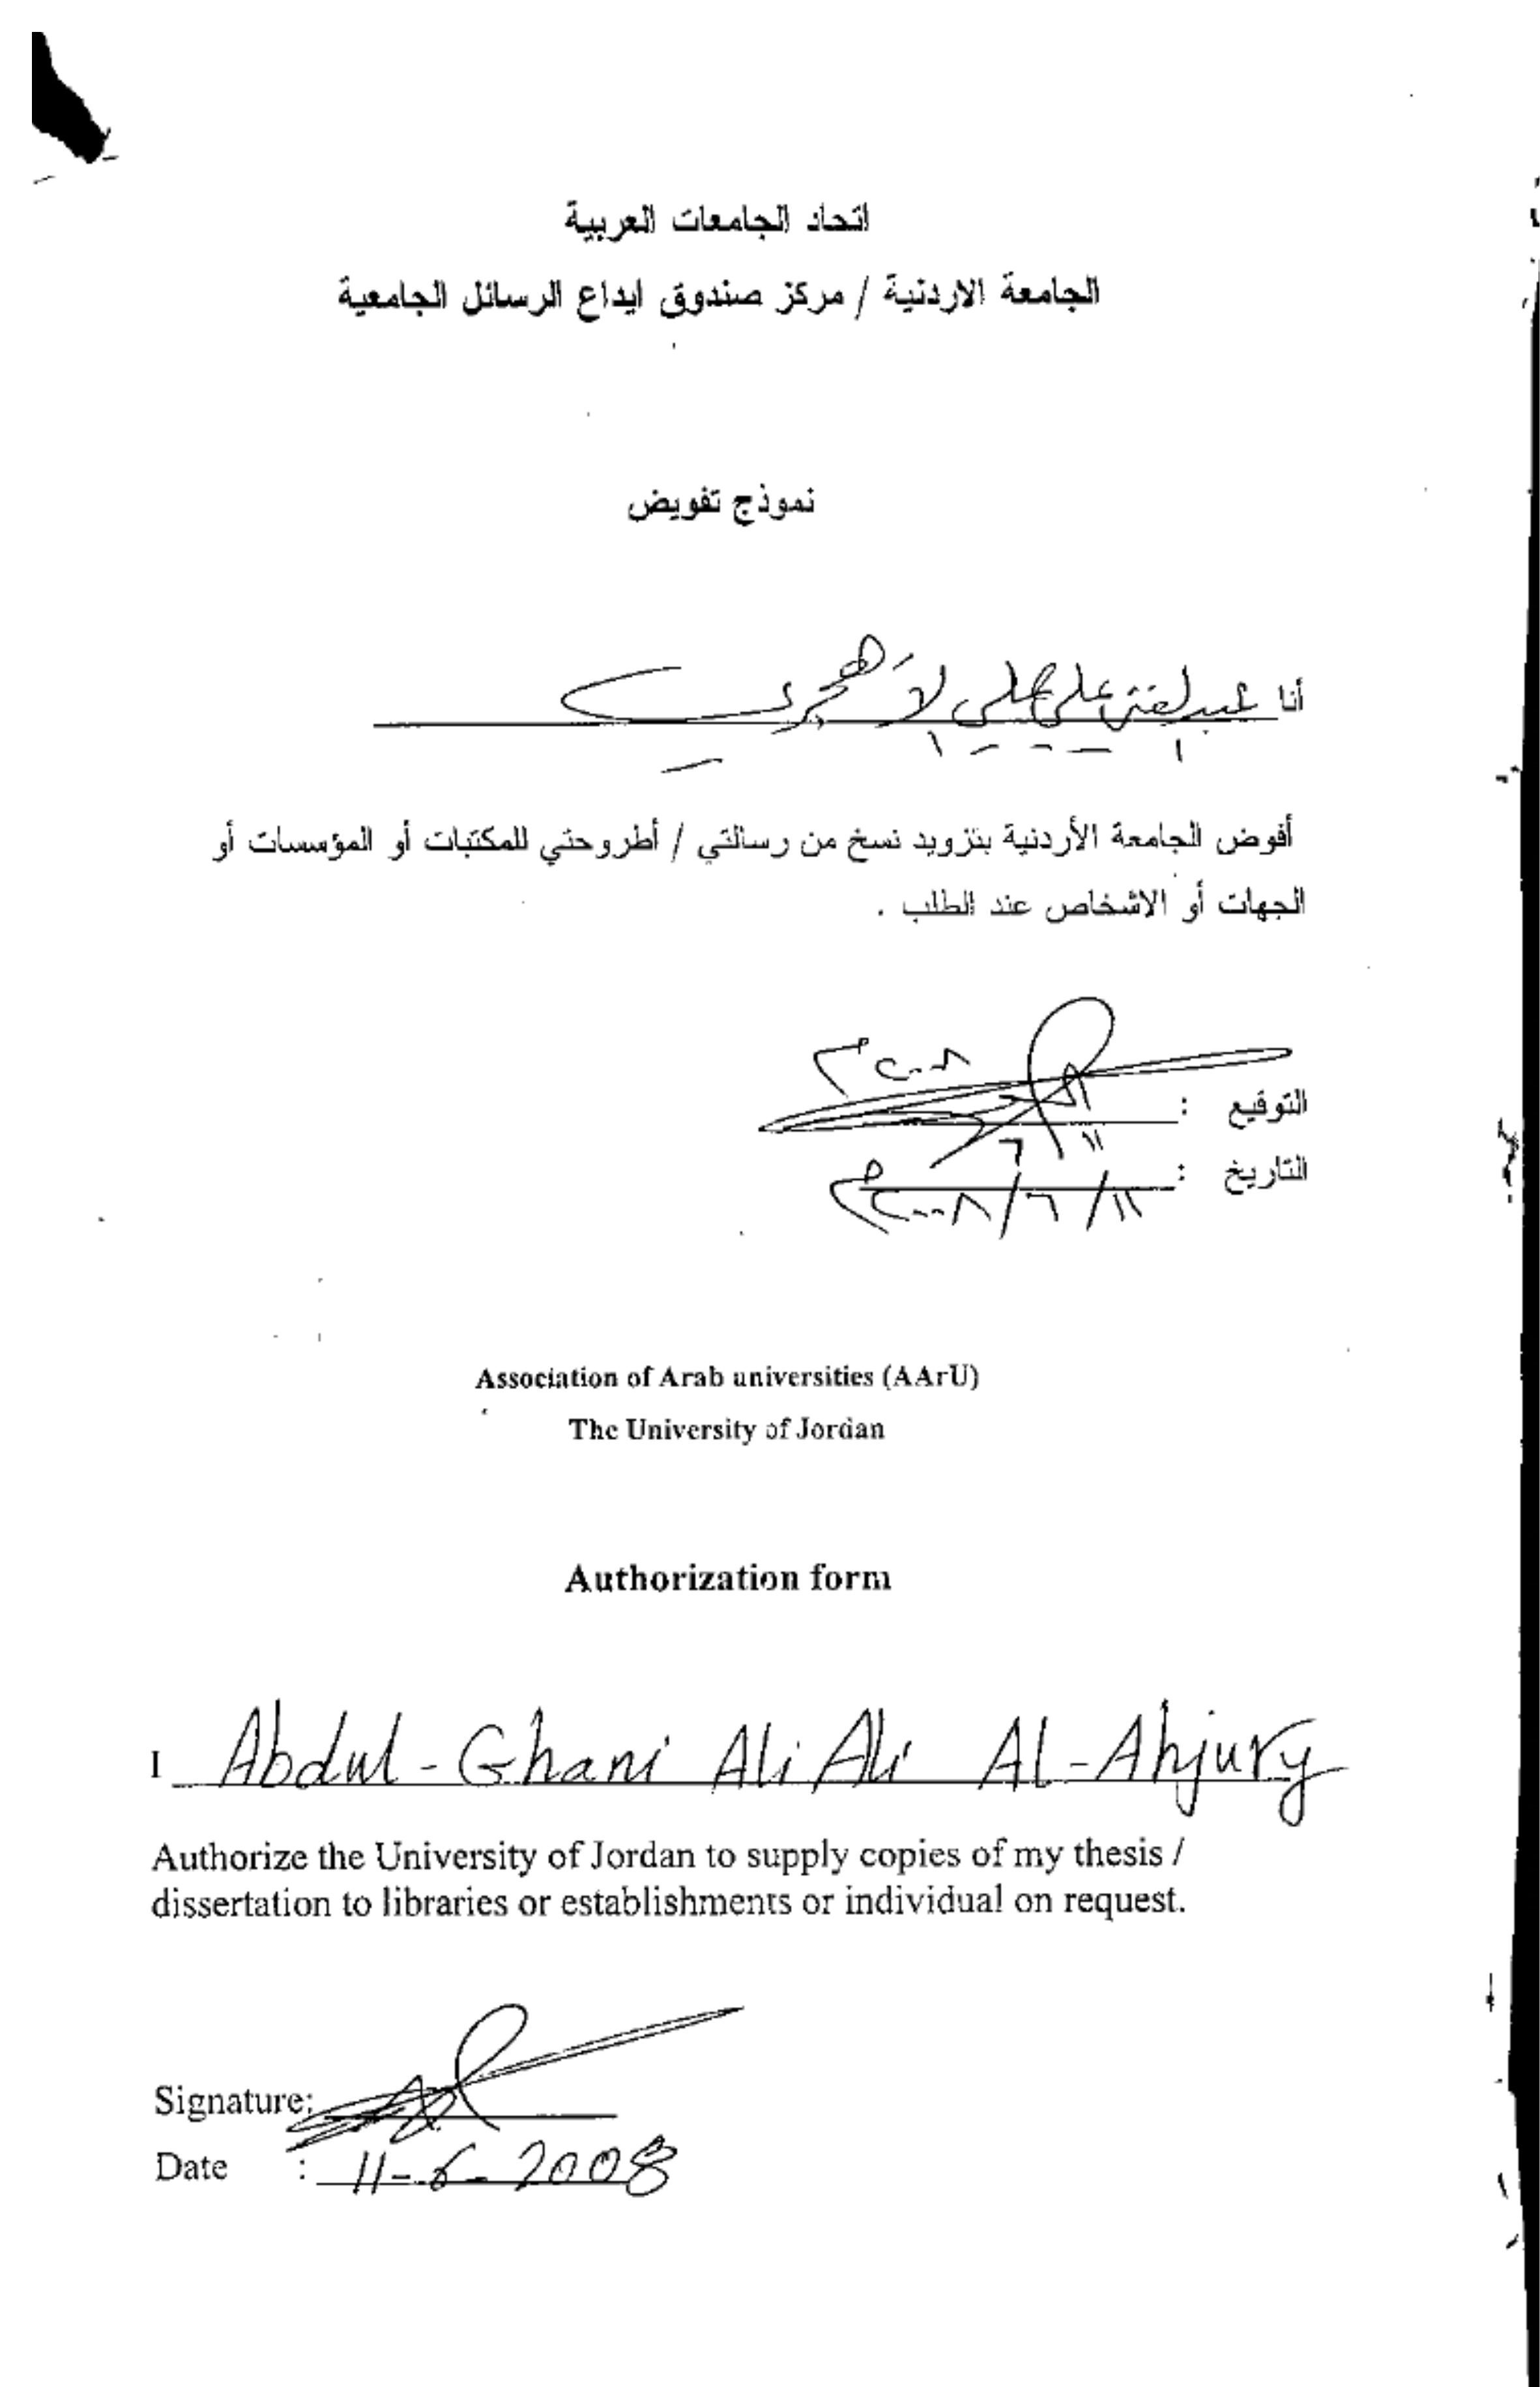 اتحاد الجامعات العربية
الجامعة الاردنية / مركز صندوق ايداع الرسائل الجامعية
نموذج تفويض
أنا عبد الغني علي علي الأهجري
أفوض الجامعة الأردنية بتزويد نسخ من رسالتي / أطروحتي للمكتبات أو المؤسسات أو
الجهات أو الاشخاص عند الطلب .
٢٠٠٨م
التوقيع :
١١ ٦
التاريخ : ١١/٦/٢٠٠٨م
Association of Arab universities (AArU)
The University of Jordan
Authorization form
I Abdul-Ghani Ali Ali Al-Ahjury
Authorize the University of Jordan to supply copies of my thesis /
dissertation to libraries or establishments or individual on request.
Signature:
Date : 11-6-2008